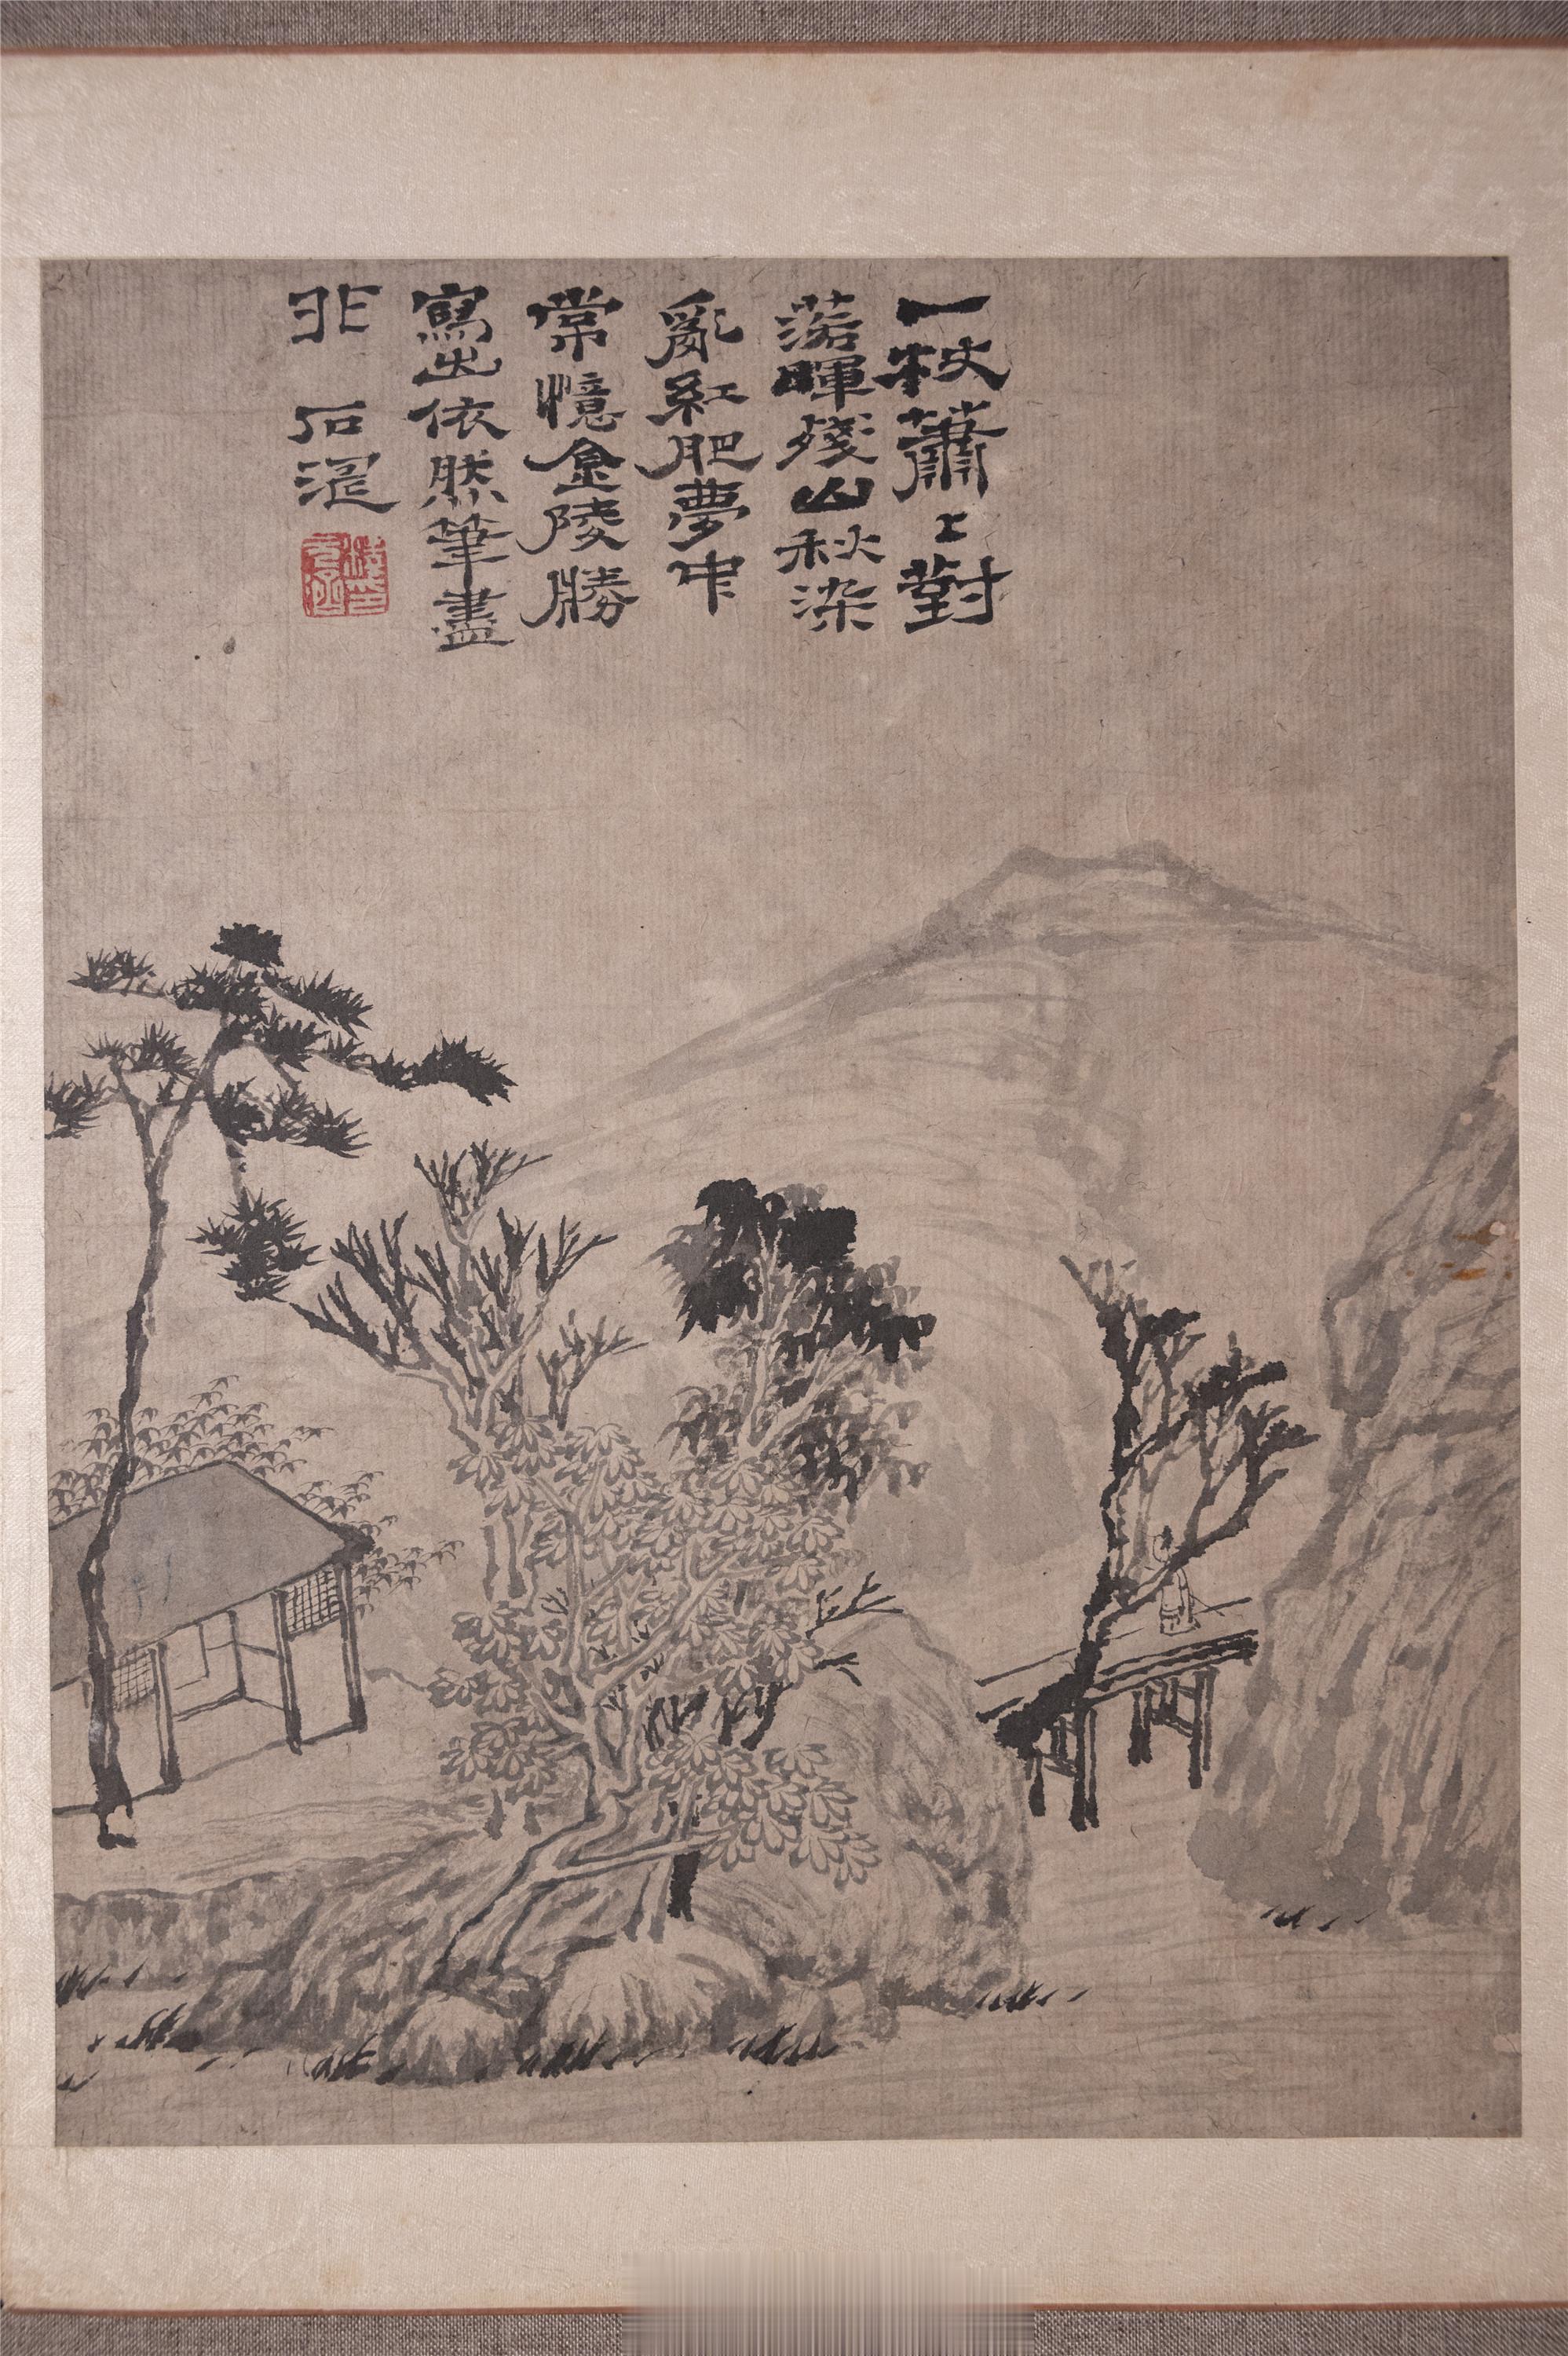 一杖蕭〻對
落暉殘山秋染
亂紅肥夢中
常憶金陵勝
寫出依然筆盡
非 石